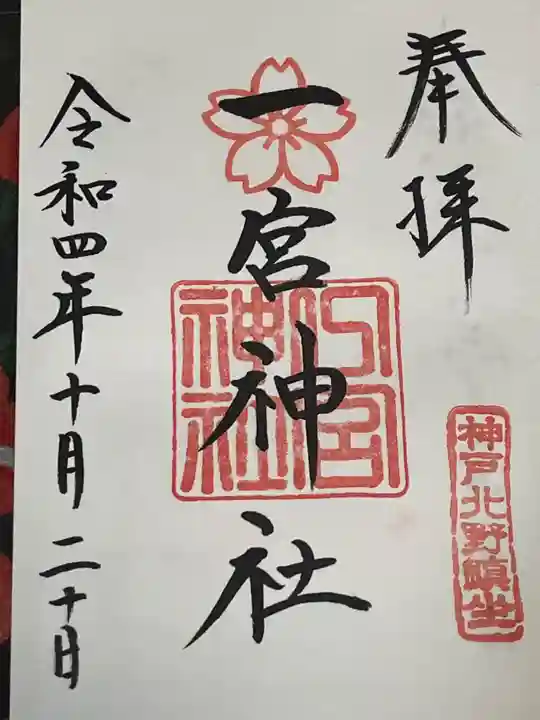 奉拝
神戸北野鎮坐
一宮神社
令和四年十月二十日